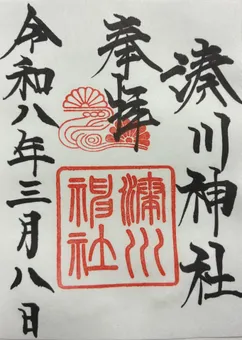 湊川神社
奉拝
湊川神社
令和八年三月八日